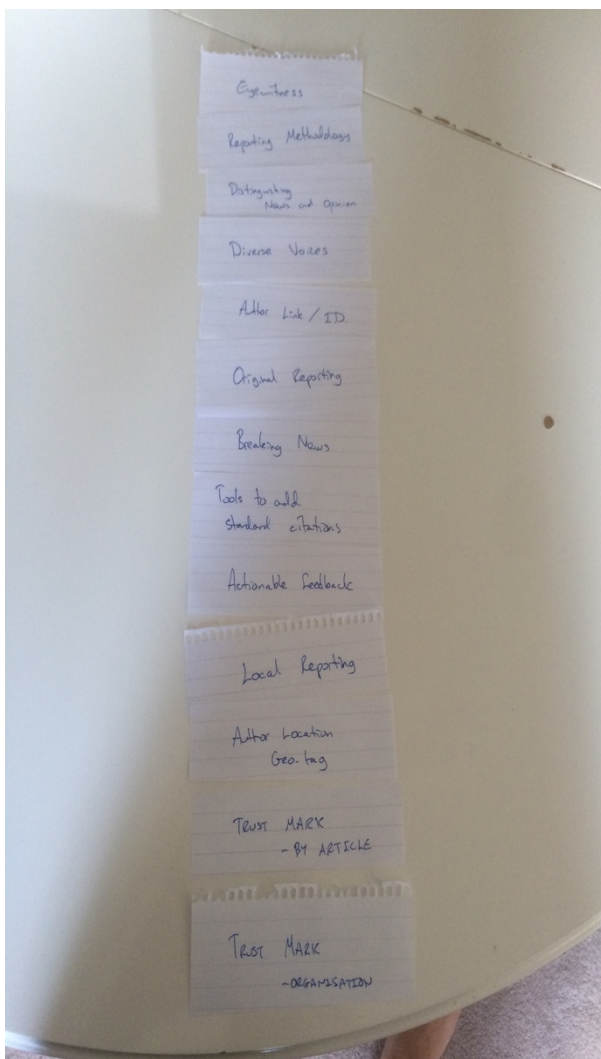 Eyewitness
Reporting Methodology
Distinguishing
News and Opinion
Diverse Voices
Author Link / ID.
Original Reporting
Breaking News
Tools to add
standard citations
Actionable feedback
Local Reporting
Author Location
Geo-tag
TRUST MARK
- BY ARTICLE
TRUST MARK
- ORGANISATION